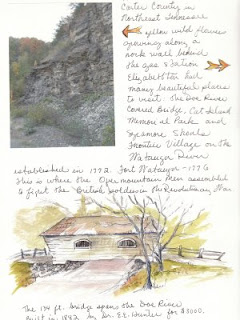 Carter County in
Northeast Tennessee
yellow wild flowers
growing along a
rock wall behind
the gas station
Elizabethton had
many beautiful places
to visit. The Doe River
Covered Bridge, Cat Island
Memorial Park and
Sycamore Shoals
Frontier Village on the
Watauga River
established in 1772. Fort Watauga - 1776
This is where the Over mountain Men assembled
to fight the British soldiers in the Revolutionary War
The 134 ft. bridge spans the Doe River
Built in 1882 by Dr. E.E. Hunter for $3000.